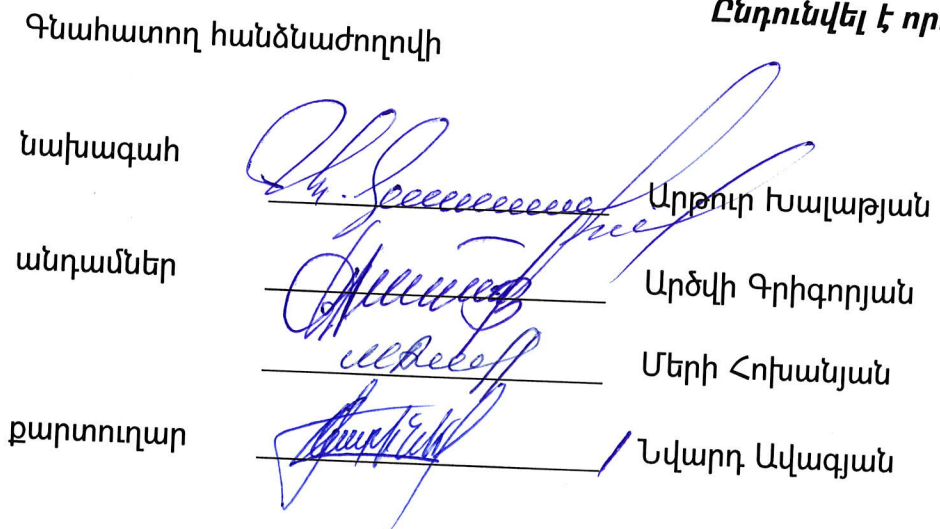 Ընդունվել է որ
Գնահատող հանձնաժողովի
նախագահ Արթուր Խալաթյան
անդամներ Արծվի Գրիգորյան
Մերի Հոխանյան
քարտուղար Նվարդ Ավագյան